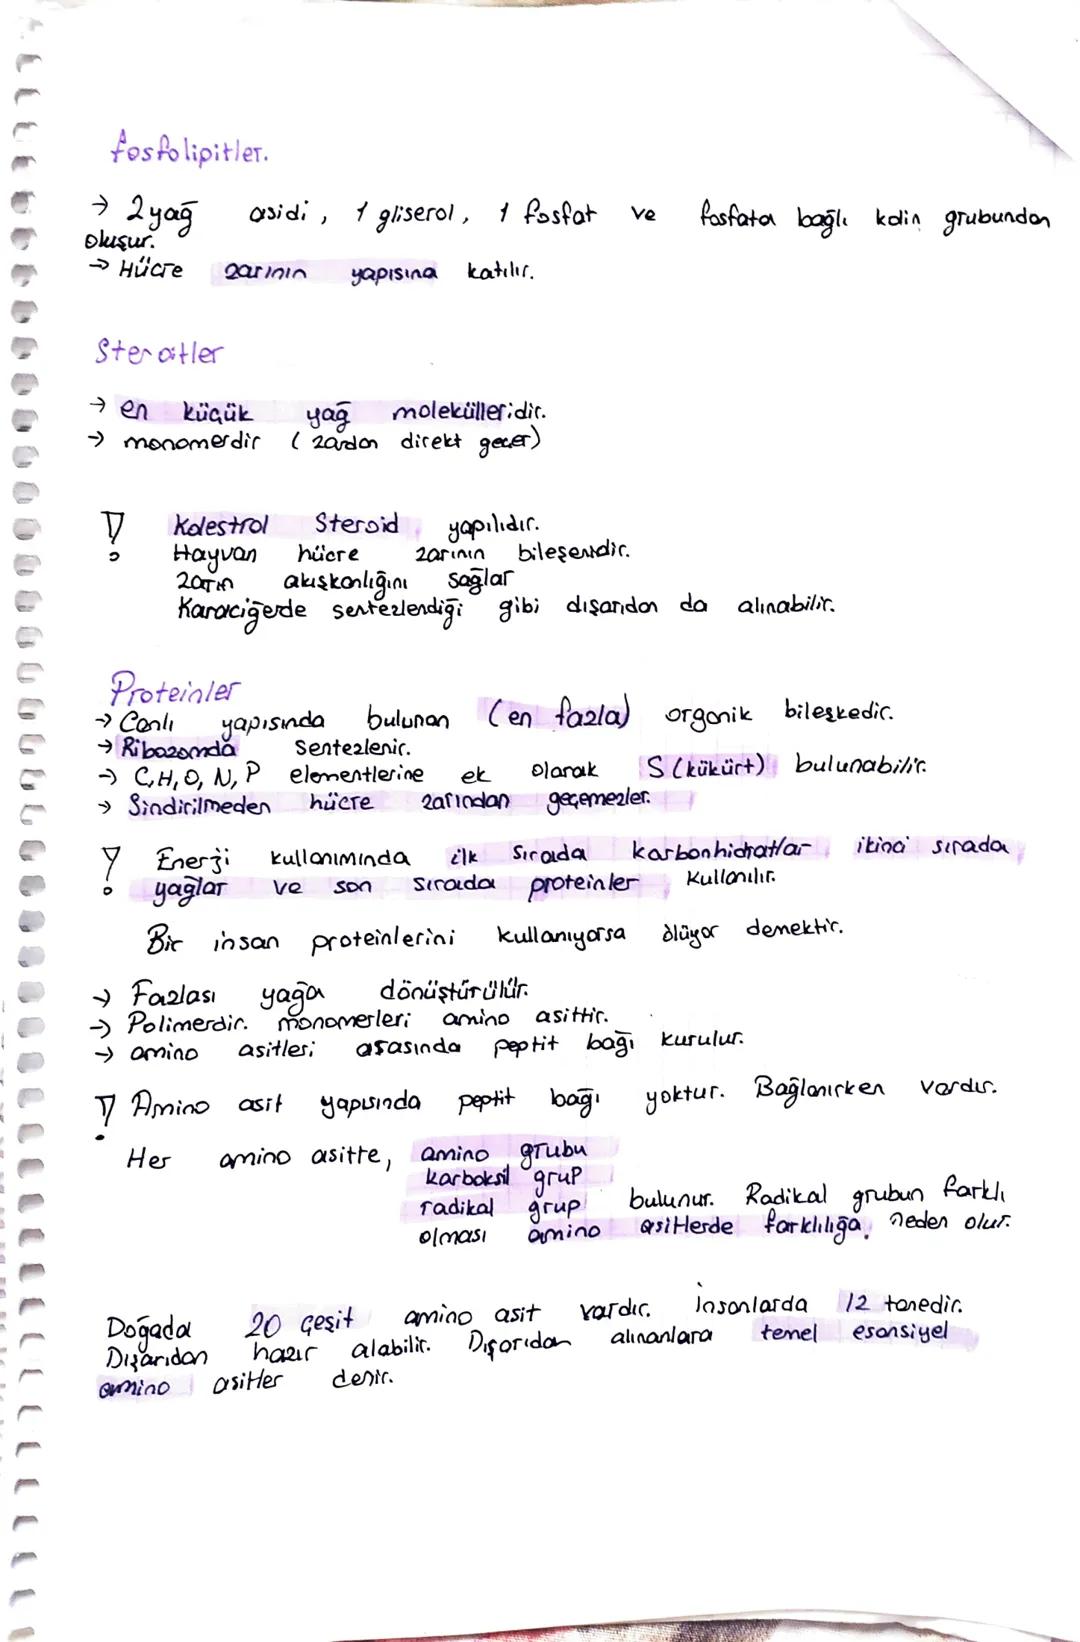 fosfolipitler.
→ 2 yağ asidi, 1 gliserol, 1 fosfat ve fosfata bağlı kolin grubundan
oluşur.
→ Hücre zarının yapısına katılır.
Steroitler
→ en küçük yağ molekülleridir.
→ monomerdir (zardan direkt geçer)
! Kolestrol Steroid yapılıdır.
Hayvan hücre zarının bileşenidir.
zarın akışkanlığını sağlar
Karaciğerde sentezlendiği gibi dışarıdan da alınabilir.
Proteinler
→ Canlı yapısında bulunan (en fazla) organik bileşkedir.
→ Ribozomda sentezlenir.
→ C, H, O, N, P elementlerine ek olarak S (kükürt) bulunabilir.
→ Sindirilmeden hücre zarından geçemezler.
! Enerji kullanımında ilk sırada karbonhidratlar ikinci sırada
yağlar ve son sırada proteinler kullanılır.
Bir insan proteinlerini kullanıyorsa ölüyor demektir.
→ Fazlası yağa dönüştürülür.
→ Polimerdir. monomerleri amino asittir.
→ amino asitleri arasında peptit bağı kurulur.
! Amino asit yapısında peptit bağı yoktur. Bağlanırken vardır.
Her amino asitte, amino grubu
karboksil grup
radikal grup bulunur. Radikal grubun farklı
olması amino asitlerde farklılığa neden olur.
Doğada 20 çeşit amino asit vardır. İnsanlarda 12 tanedir.
Dışarıdan hazır alabilir. Dışarıdan alınanlara temel esansiyel
amino asitler denir.